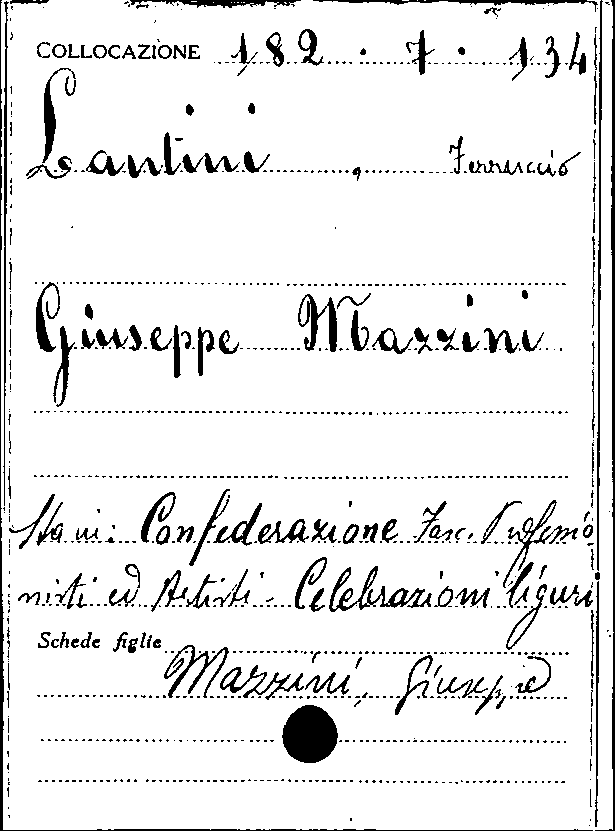 COLLOCAZIONE 182 . 7 . 134
Lantini , Ferruccio
Giuseppe Mazzini
Sta in: Confederazione Fasc. Professio
nisti ed Artisti - Celebrazioni liguri
Schede figlie
Mazzini, Giuseppe